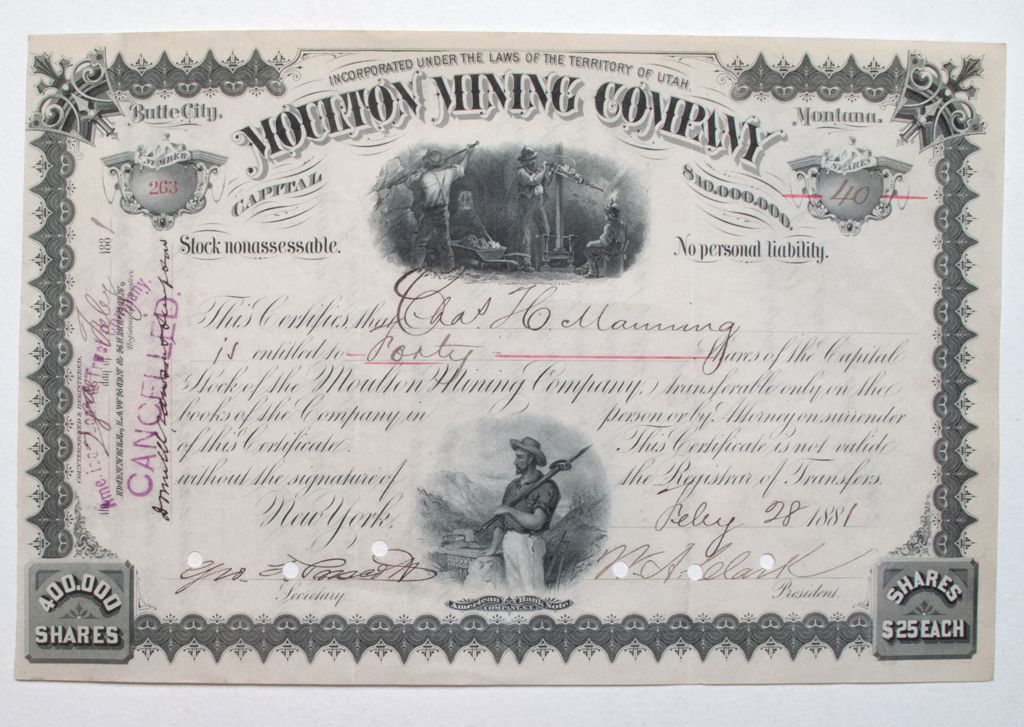 INCORPORATED UNDER THE LAWS OF THE TERRITORY OF UTAH.
Butte City.
MOULTON MINING COMPANY
Montana.
NUMBER
263
CAPITAL
$10,000,000.
SHARES
40
Stock nonassessable.
No personal liability.
This Certifies that Chas. H. Manning
is entitled to Forty Shares of the Capital
Stock of the Moulton Mining Company, transferable only on the
books of the Company in person or by Attorney on surrender
of this Certificate. This Certificate is not valid
without the signature of the Registrar of Transfers.
New York, Feby 28 1881
Secretary.
W. A. Clark
President.
American Bank Note
COMPANY, N.Y.
400,000
SHARES
SHARES
$25 EACH
COUNTERSIGNED & REGISTERED,
day of Feby 1881
DONNELL, LAWSON & SIMPSON
Registrar of Transfers.
CANCELLED.